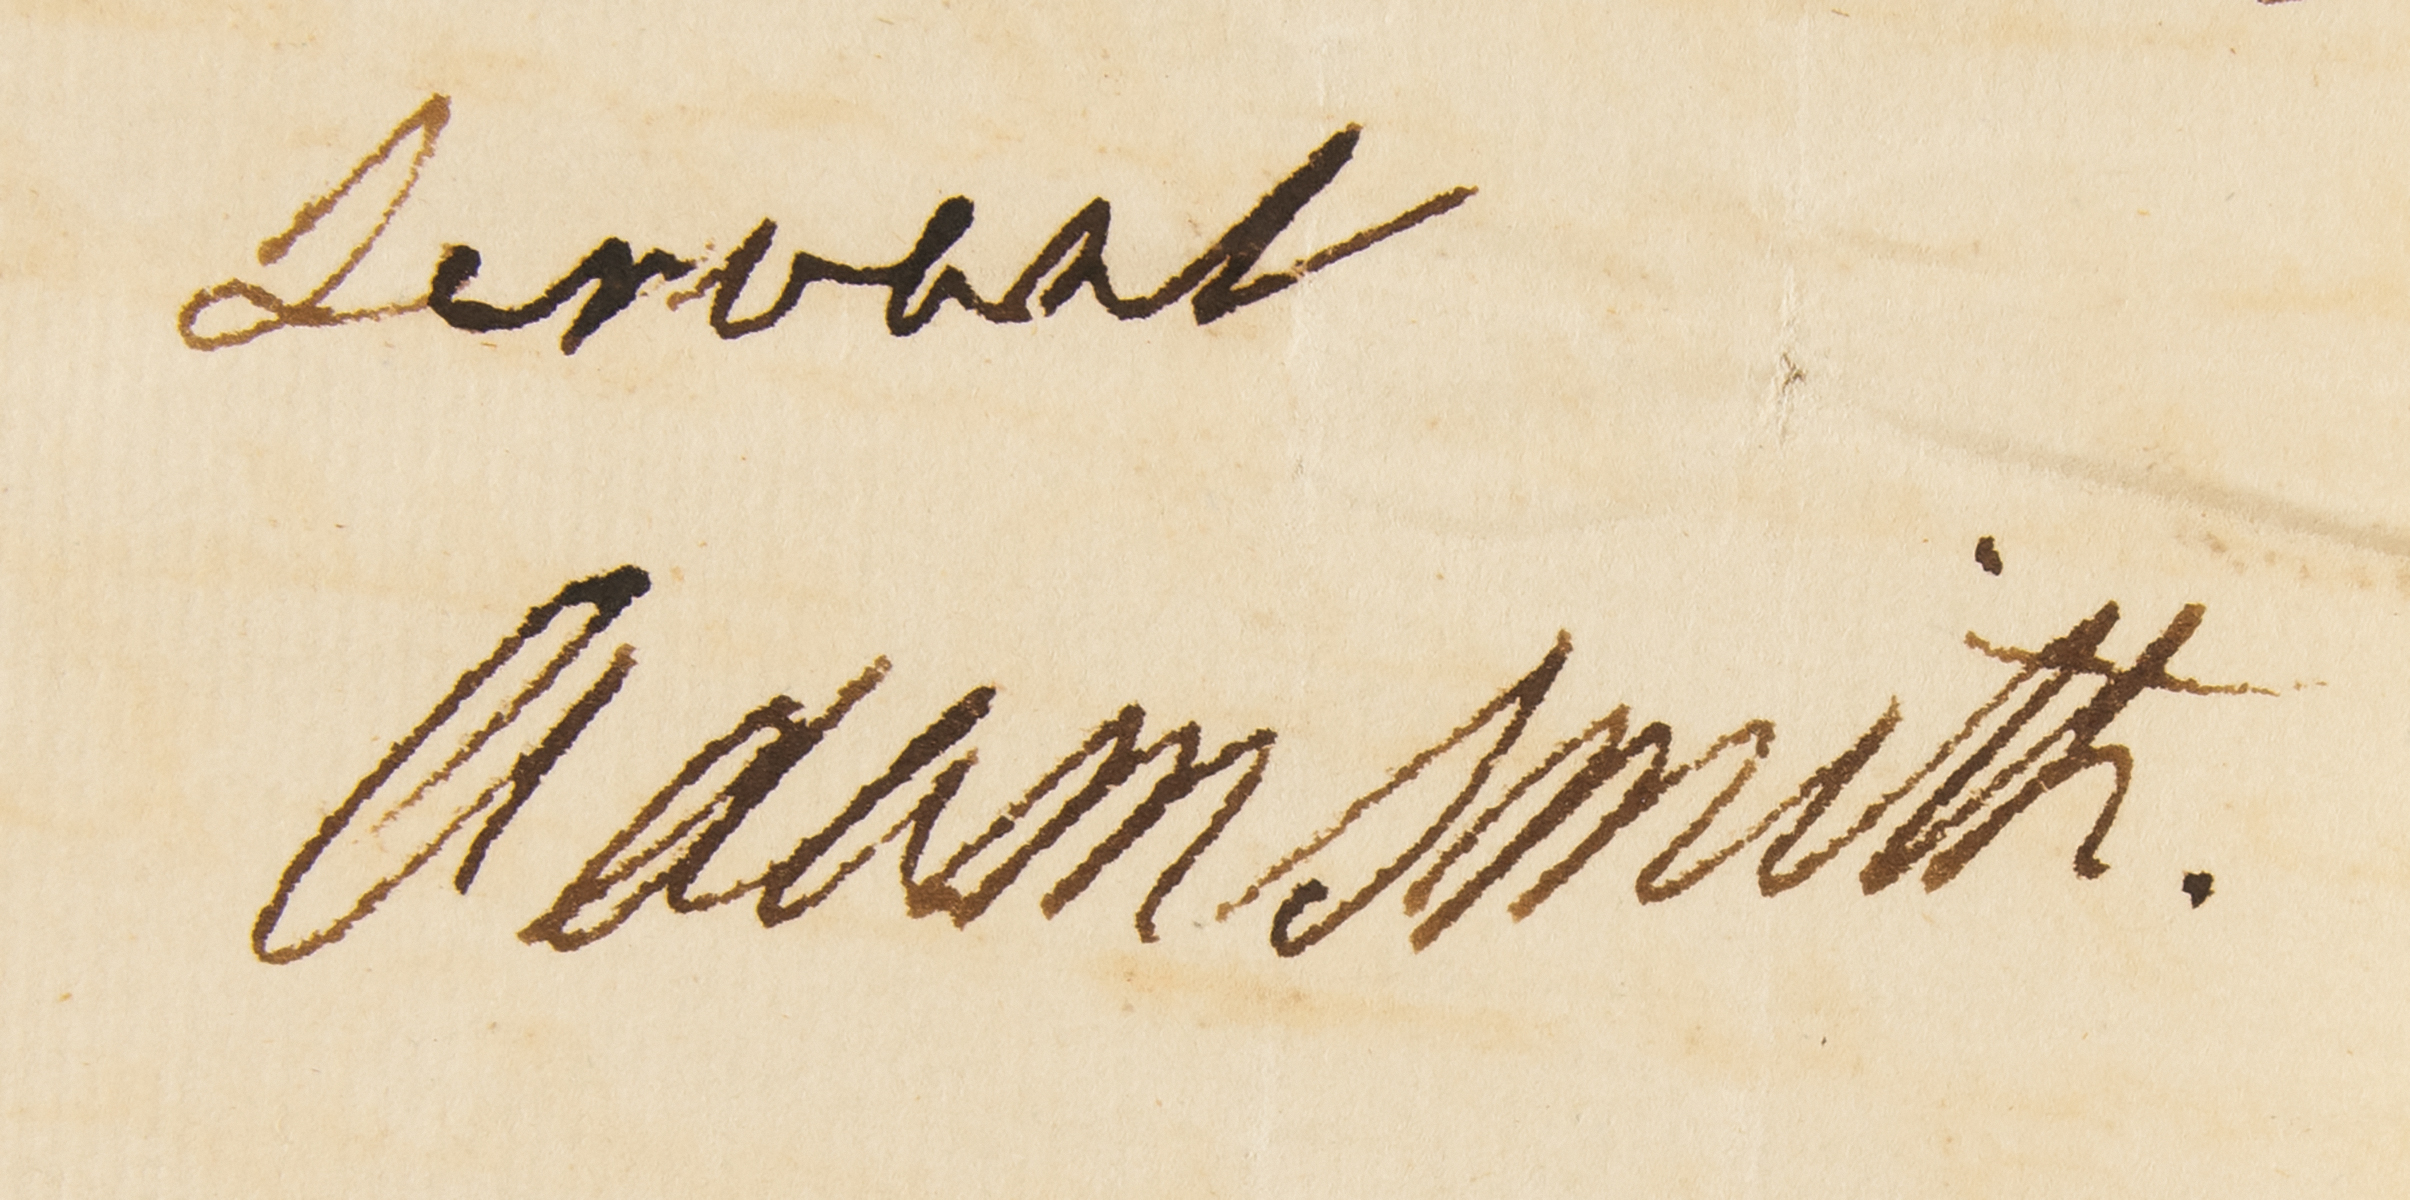 Servant
Adam Smith.